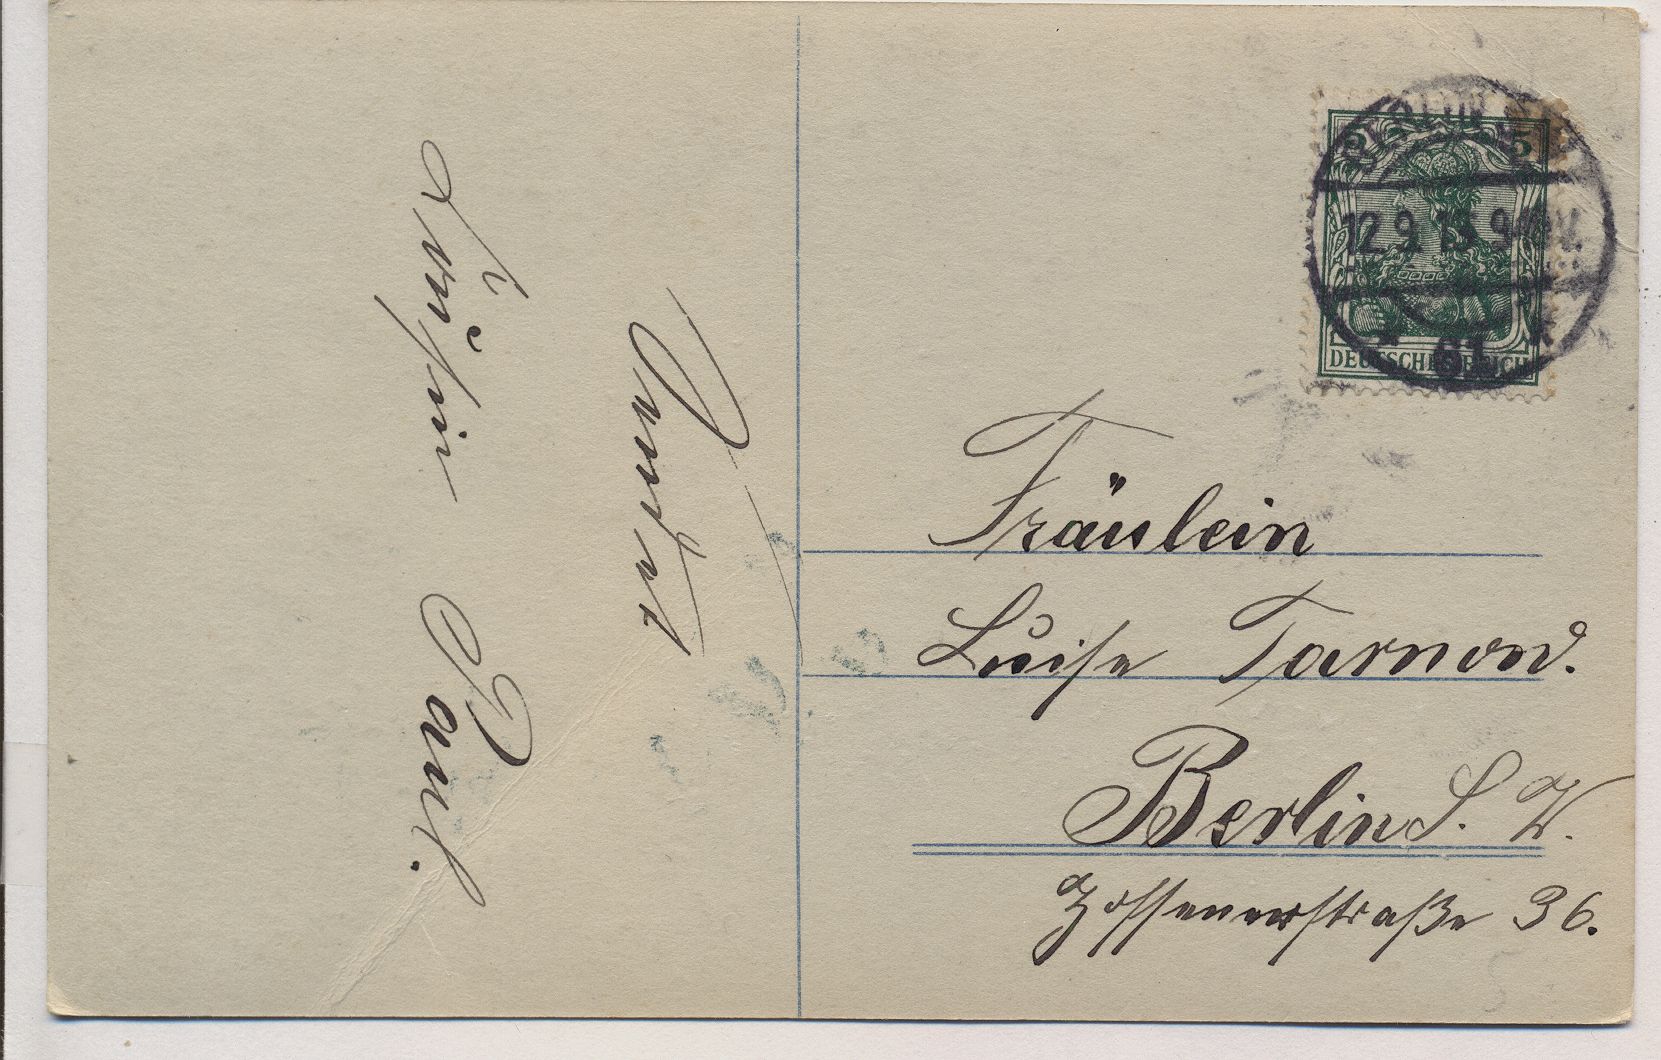 BERLIN
12.9.13 9-10V.
* 61 *
5
DEUTSCHES REICH
Fräulein
Luise Tarnow.
Berlin S. W.
Zossenerstraße 36.
Paul.